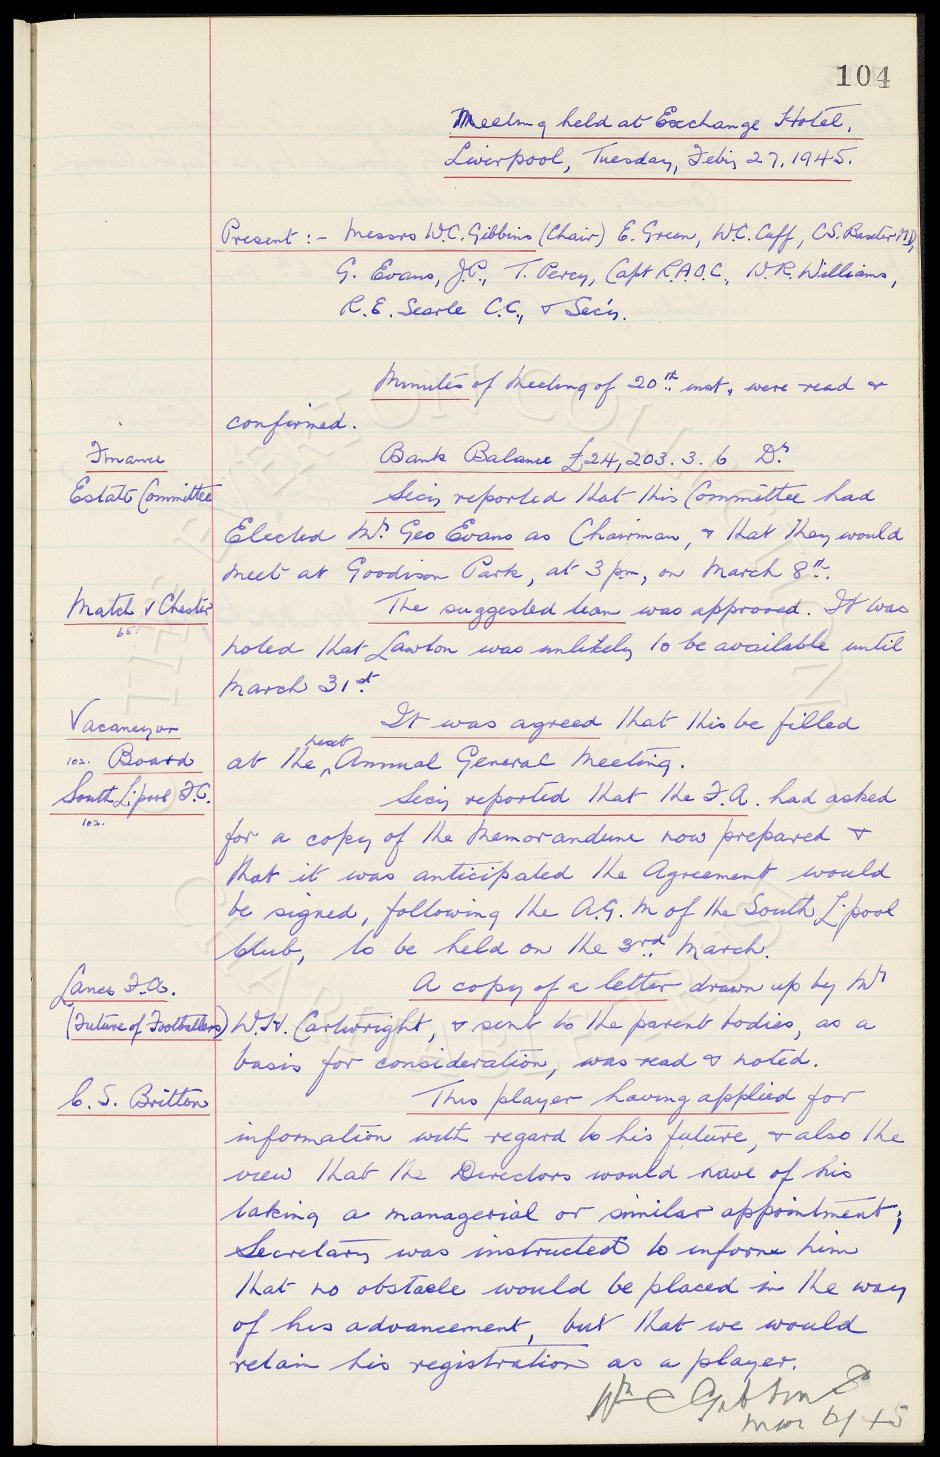 104
Meeting held at Exchange Hotel,
Liverpool, Tuesday, Feby 27. 1945.
Present :- Messrs W.C. Gibbins (Chair) E. Green, W.C. Cuff, C.S. Baxter MD,
G. Evans, J.P., T. Percy, Capt R.A.O.C., W.R. Williams,
R.E. Searle C.C., & Secy.
Minutes of Meeting of 20th inst, were read &
confirmed.
Finance Bank Balance £24,203. 3. 6 Dr
Estate Committee Secy reported that this Committee had
Elected Mr. Geo Evans as Chairman, & that they would
meet at Goodison Park, at 3 pm, on March 8th.
Match v Chester The suggested team was approved. It was
noted that Lawton was unlikely to be available until
March 31st
Vacancy on It was agreed that this be filled
102. Board at the next Annual General Meeting.
South L'pool F.C. Secy reported that the F.A. had asked
102.
for a copy of the Memorandum now prepared &
that it was anticipated the Agreement would
be signed, following the A.G.M of the South L'pool
Club, to be held on the 3rd March.
Lancs F.A. A copy of a letter drawn up by Mr
(Future of Footballers) W.H. Cartwright, & sent to the parent bodies, as a
basis for consideration, was read & noted.
C.S. Britton This player having applied for
information with regard to his future, & also the
view that the Directors would have of his
taking a managerial or similar appointment;
Secretary was instructed to inform him
that no obstacle would be placed in the way
of his advancement, but that we would
retain his registration as a player.
Wm C Gibbins
Mar 6/45
THE EVERTON COLLECTION
CHARITABLE TRUST